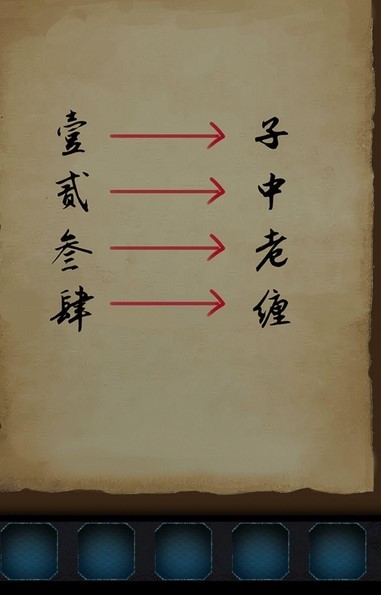 壹 子
贰 中
叁 老
肆 缠